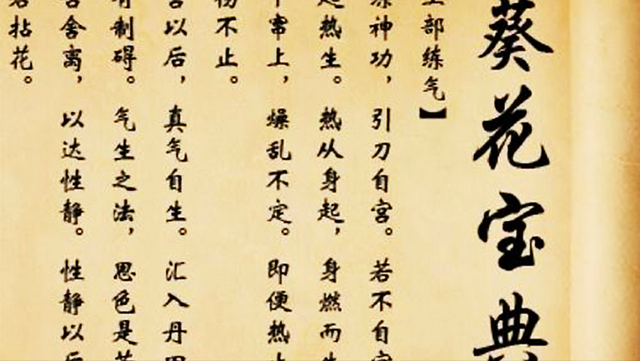 葵花宝典
部练气】
神功,引刀自宫。若不自宫
起热生。热从身起,身燃而生
窜上,燥乱不定。即便热止
伤不止。
以后,真气自生。汇入丹田
有制碍。气生之法,思色是苦
舍离,以达性静。性静以后
若拈花。